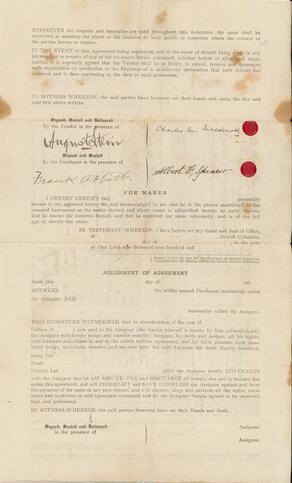 WHEREVER the singular and masculine are used throughout this Indenture, the same shall be
construed as meaning the plural or the feminine or body politic or corporate where the context or
the parties hereto so require.
IN THE EVENT of this Agreement being registered, and in the event of default being made in any
payment in respect of any of the covenants herein contained, whether before or after such
it is expressly agreed that the Vendor shall be at liberty to cancel, remove and determine
such registration on production to the Registrar of a satisfactory declaration that such default has
occurred and is then continuing at the date of such production.
IN WITNESS WHEREOF, the said parties have set their hands and seals, the day and
year first above written.
Signed, Sealed and Delivered
By the Vendor in the presence of
Signed, Sealed and Secured
By the Purchaser in the presence of
Frank Abbott
FOR MAKER
I HEREBY CERTIFY that personally
known to me, appeared before me, and acknowledged to me that he is the person mentioned in the
annexed Instrument as the maker thereof, and whose name is subscribed thereto as party thereto, that
he knows the contents thereof, and that he executed the same voluntarily, and is of the full
age of twenty-one years.
IN TESTIMONY WHEREOF, I have set my Hand and Seal of Office,
at British Columbia,
this day of in the year
of Our Lord one thousand nine hundred and
ASSIGNMENT OF AGREEMENT
Made this day of 191
BETWEEN the within named Purchaser, hereinafter called
the Assignor, AND
hereinafter called the Assignee.
THIS INDENTURE WITNESSETH that in consideration of the sum of
Dollars of now paid to the Assignor (the receipt whereof is hereby by him acknowledged),
the Assignor doth hereby assign and transfer unto the Assignee his heirs and assigns, all his rights,
title, interests and claims in and to the within written agreement, and
being Lot
Block
District Lot AND the Assignee hereby COVENANTS
with the Assignor that he will ASSUME, PAY and DISCHARGE all moneys due and to become due
under this agreement, and will INDEMNIFY and SAVE HARMLESS the Assignor against and from
the payment of the same or any part thereof, and will observe, keep, and perform all the terms, cove-
nants and conditions in said agreement contained, and by the Assignor therein agreed to be observed,
kept and performed.
IN WITNESS WHEREOF, the said parties hereunto have set their Hands and Seals.
Signed, Sealed and Delivered
in the presence of
Assignor.
Assignee.